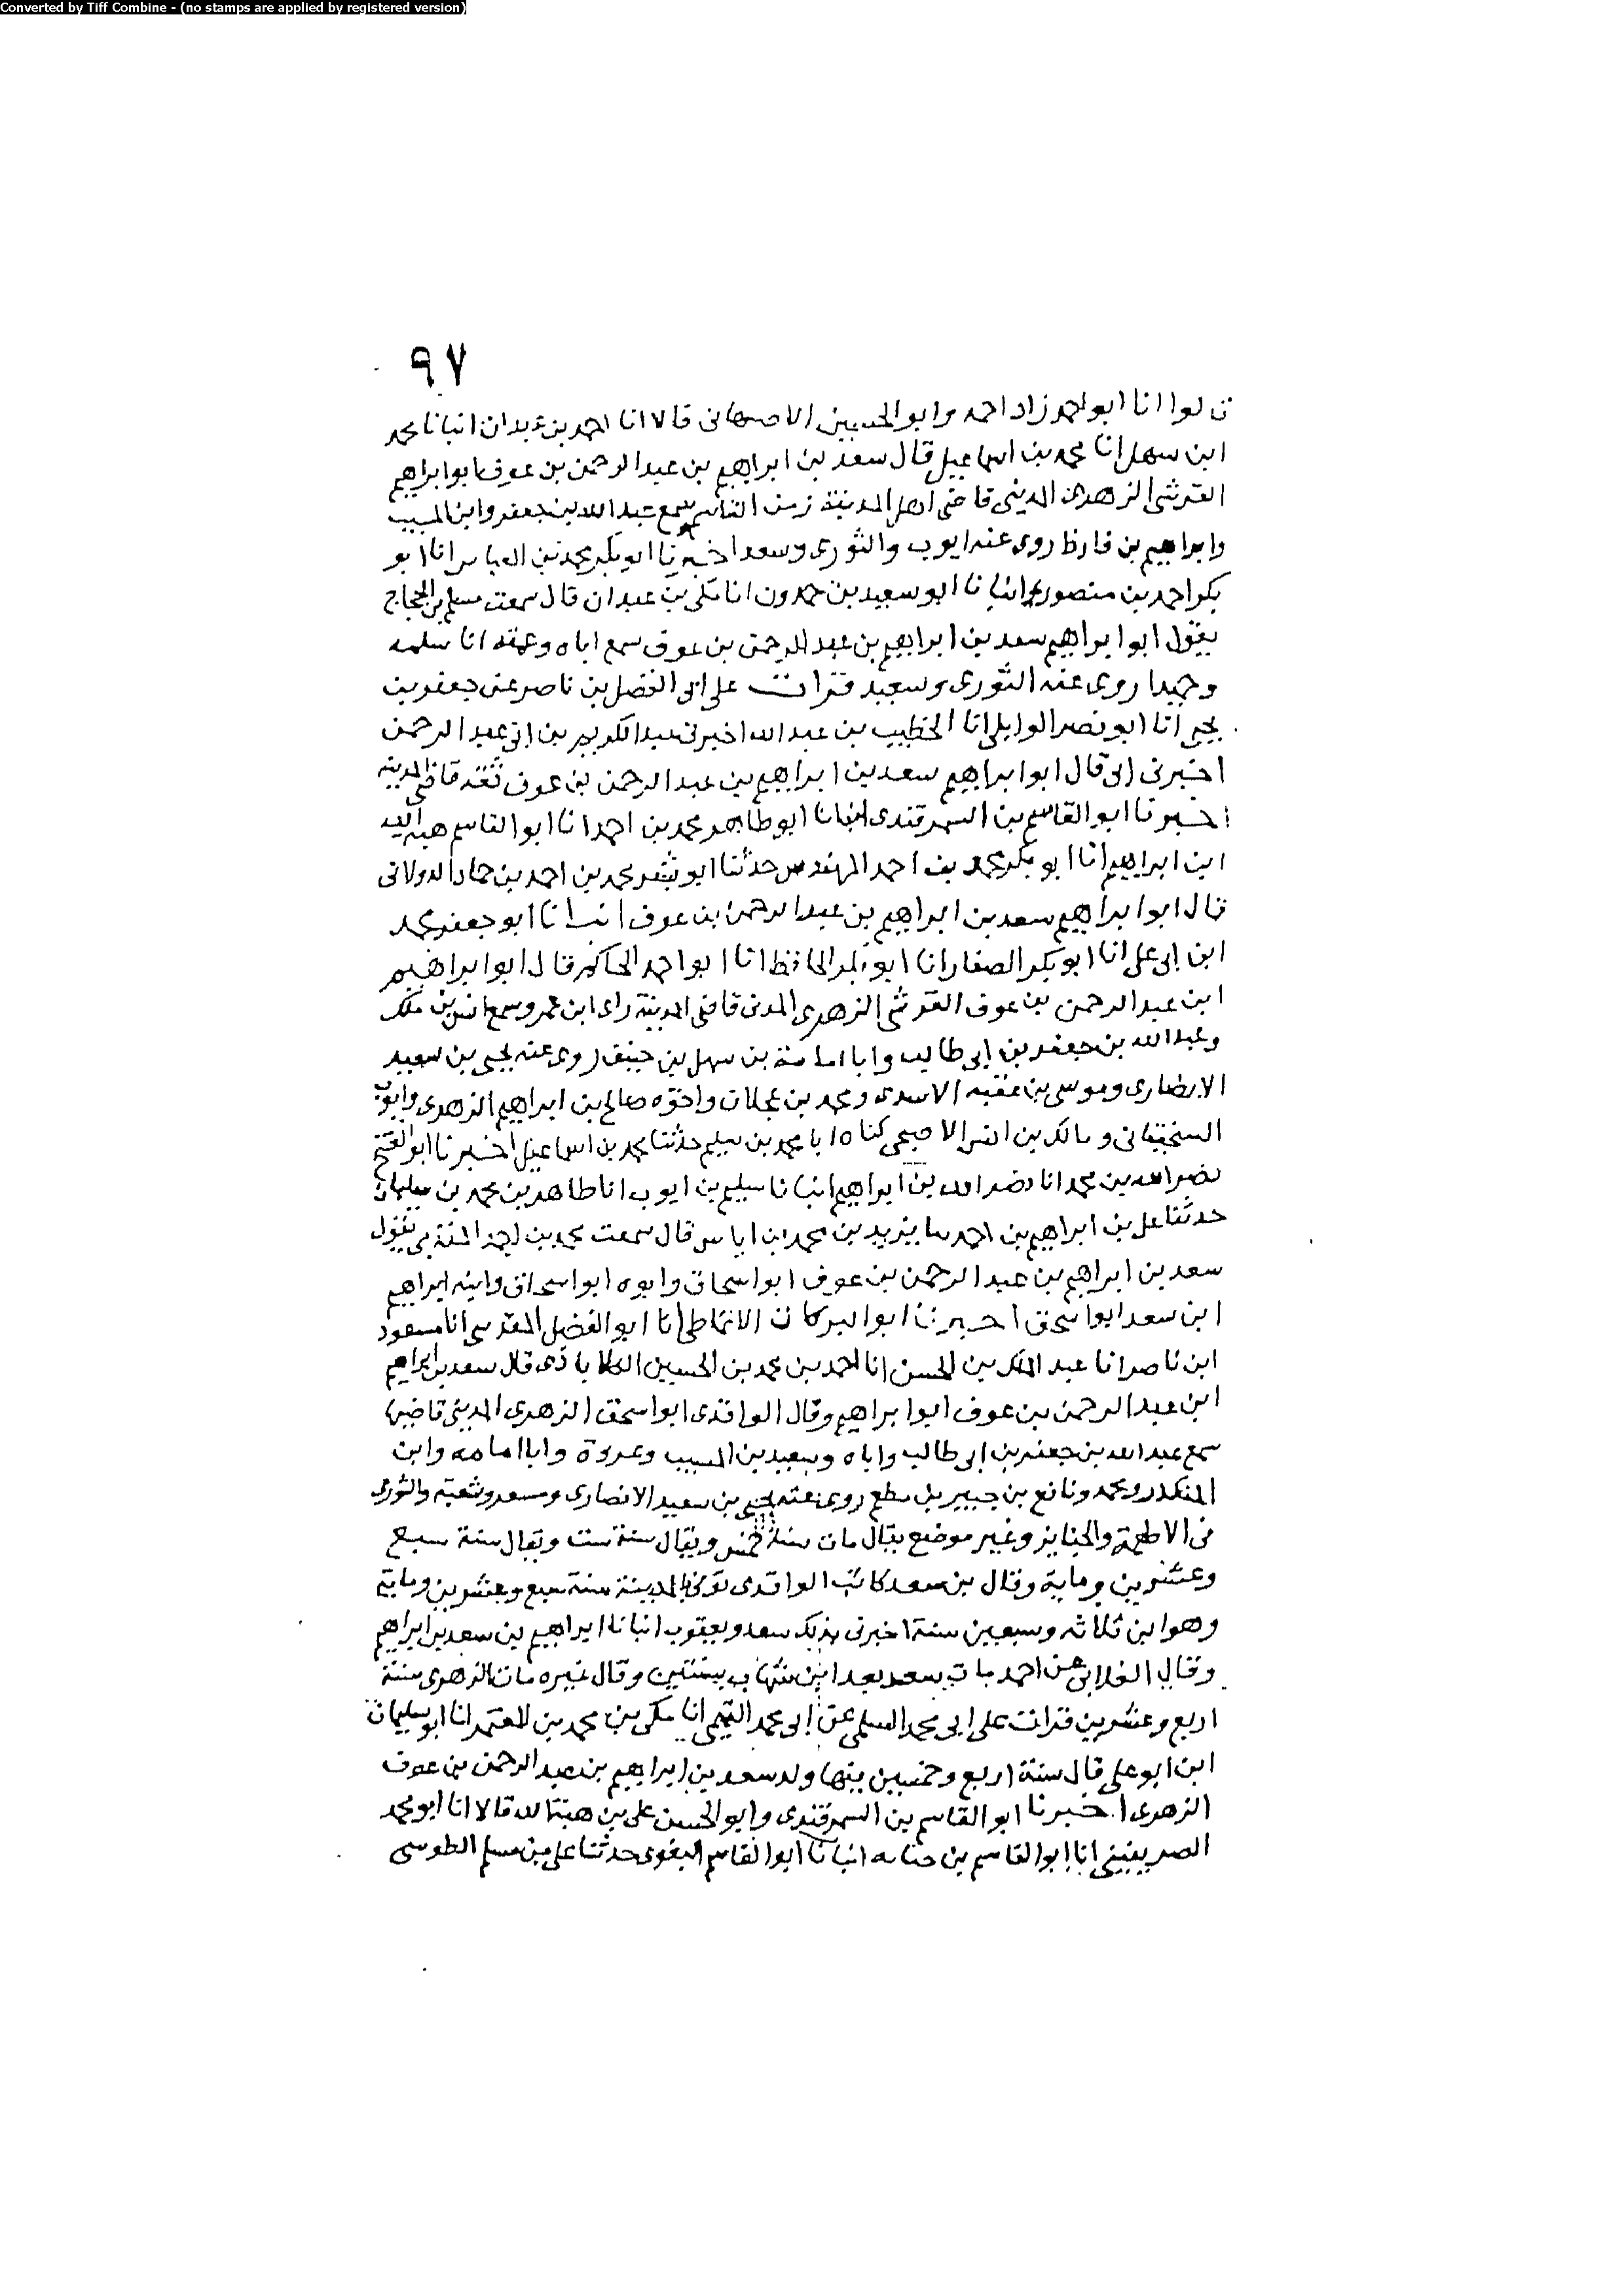 Converted by Tiff Combine - (no stamps are applied by registered version)
٩٧
قالوا انا ابو احمد زاد احمد وابو الحسين الاصبهانى قالا انا احمد بن عبدان انبانا محمد
ابن سهل انا محمد بن اسماعيل قال سعد بن ابراهيم بن عبد الرحمن بن عوف ابو ابراهيم
القرشى الزهرى المدينى قاضى اهل المدينة زمن القاسم سمع عبد الله بن جعفر وابن المسيب
وابراهيم بن قارظ روى عنه ايوب والثورى وسعد اخبرنا ابو بكر محمد بن العباس انا ابو
بكر احمد بن منصور انبانا ابو سعيد بن حمدون انا مكى بن عبدان قال سمعت مسلم بن الحجاج
يقول ابو ابراهيم سعد بن ابراهيم بن عبد الرحمن بن عوف سمع اباه وعمه انا سلمه
وحميدا روى عنه الثورى وسعيد قرات على ابى الفضل بن ناصر عن جعفر بن
يحيى انا ابو نصر الوايلى انا الخطيب بن عبد الله اخبرنى عبد الكريم بن ابى عبد الرحمن
اخبرنى ابى قال ابو ابراهيم سعد بن ابراهيم بن عبد الرحمن بن عوف ثقه قاضى المدينه
اخبرنا ابو القاسم بن السمرقندى انبانا ابو طاهر محمد بن احمد انا ابو القاسم هبه الله
ابن ابراهيم انا ابو بكر محمد بن احمد المهندس حدثنا ابو بشر محمد بن احمد بن حماد الدولابى
قال ابو ابراهيم سعد بن ابراهيم بن عبد الرحمن بن عوف انبانا ابو جعفر محمد
ابن ابى على انا ابو بكر الصفار انا ابو بكر الحافظ انا ابو احمد الحاكم قال ابو ابراهيم
ابن عبد الرحمن بن عوف القرشى الزهرى المدنى قاضى المدينة راى ابن عمر وسمع انس بن ملك
وعبد الله بن جعفر بن ابى طالب وابا امامة بن سهل بن حنيف روى عنه يحيى بن سعيد
الانصارى وموسى بن عقبه الاسدى ومحمد بن عجلان واخوه صالح بن ابراهيم الزهرى وايوب
السختيانى ومالك بن انس الاصبحى كناه ابا محمد بن سليم حدثنا محمد بن اسماعيل اخبرنا ابو الفتح
نصر الله بن محمد انا نصر الله بن ابراهيم انبانا سليم بن ايوب انا طاهر بن محمد بن سليمان
حدثنا على بن ابراهيم بن احمد سا يزيد بن محمد بن اياس قال سمعت محمد بن احمد المقدمى يقول
سعد بن ابراهيم بن عبد الرحمن بن عوف ابو اسحاق وابوه ابو اسحاق وابنه ابراهيم
ابن سعد ابو اسحق اخبرنا ابو البركات الانماطى انا ابو الفضل المقدسى انا مسعود
ابن ناصر انا عبد الملك بن الحسن انا احمد بن محمد بن الحسين الكلاباذى قال سعد بن ابراهيم
ابن عبد الرحمن بن عوف ابو ابراهيم وقال الواقدى ابو اسحق الزهرى المدينى قاضيها
سمع عبد الله بن جعفر بن ابى طالب واباه وسعيد بن المسيب وعروة وابا امامه وابن
المنكدر ومحمد ونافع بن جبير بن مطعم روى عنه يحيى بن سعيد الانصارى ومسعر وشعبة والثورى
فى الاطعمة والجنايز وغير موضع يقال مات سنة خمس ويقال سنة ست ويقال سنة سبع
وعشرين وماية وقال بن سعد كاتب الواقدى توفى بالمدينة سنة سبع وعشرين وماية
وهو ابن ثلاثه وسبعين سنة اخبرنى بذلك سعد ويعقوب انبانا ابراهيم بن سعد بن ابراهيم
وقال الغلابى عن احمد مات سعد بعد ابن شهاب بسنتين وقال غيره مات الزهرى سنة
اربع وعشرين قرات على ابى محمد السلمى عن ابى محمد التميمى انا مكى بن محمد بن المعتمر انا ابو سليمان
ابن ابو على قال سنة اربع وخمسين بيتها ولد سعد بن ابراهيم بن عبد الرحمن بن عوف
الزهرى اخبرنا ابو القاسم بن السمرقندى وابو الحسن على بن هبة الله قالا انا ابو محمد
الصريفينى انا ابو القاسم بن حبابه انبانا ابو القاسم البغوى حدثنا على بن مسلم الطوسى